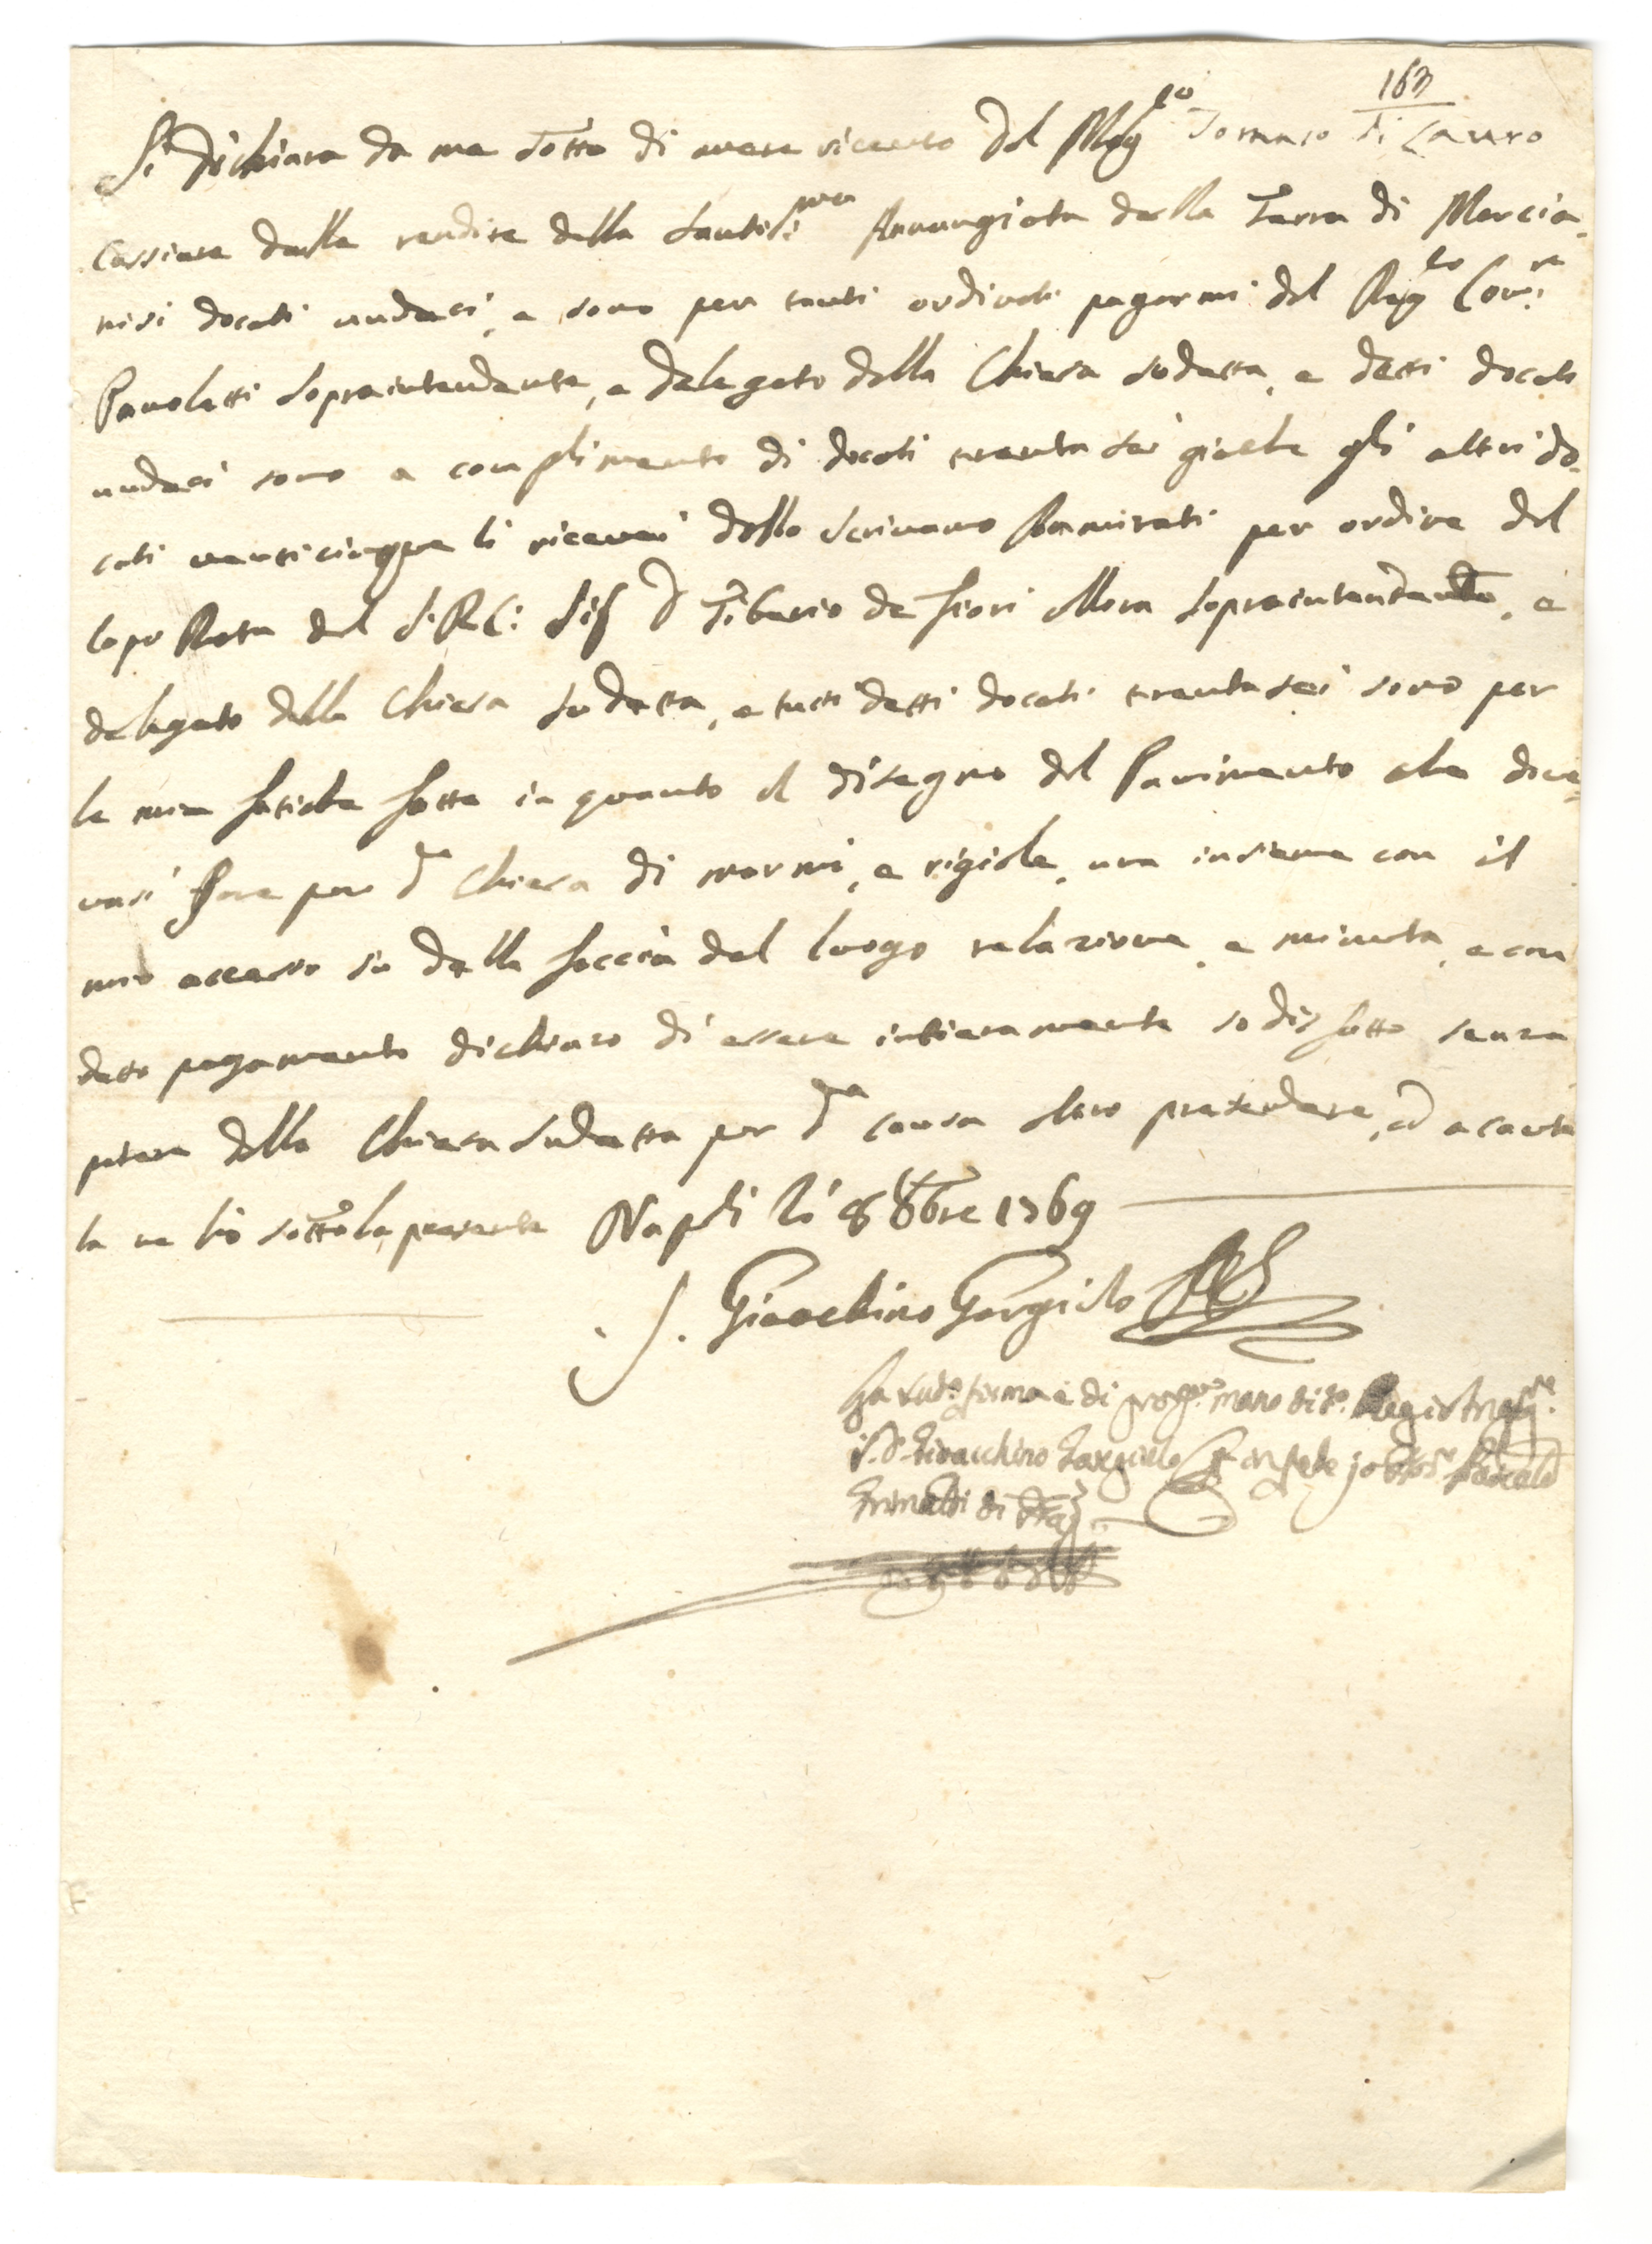 163
Si dichiara da me sotto di avere ricevuto dal Mag.co Tomaso di Lauro
Cassiere delle rendite della Santiss.ma Annungiata della Terra di Marcia-
nisi docati undeci, e sono per tanti ordinati pagarmi dal Reg.io Con.re
Pavoletti Sopraintendente, e Delegato della Chiesa sudetta, e detti docati
undeci sono a complimento di docati trenta sei giache gli altri do-
cati venticinque li ricevei dallo Scrivano Ammirati per ordine del
Capo Rota del S.R.C: Sig D Tiberio de Fiori allora Sopraintendente, e
delegato della Chiesa sudetta, e tutti detti docati trenta sei sono per
le mie fatiche fatte in quanto al disegno del Pavimento che dove-
vasi fare per d.a Chiesa di marmi, e rigiole, una insieme con il
mio accesso su della faccia del luogo relazione, e minuta, e con
detto pagamento dichiaro di essere intieramente sodisfatto senza
potere dalla Chiesa sudetta per d.a causa altro pretendere, ed a caute
la ne hò sott.o la presente Napoli li 8 8bre 1769
J. Gioachino Gargiulo
La sud.a firma è di prop.a mano di d.o Regio Ing.re
S.r D. Gioacchino Gargiulo in fede io Not.r Pascale
di